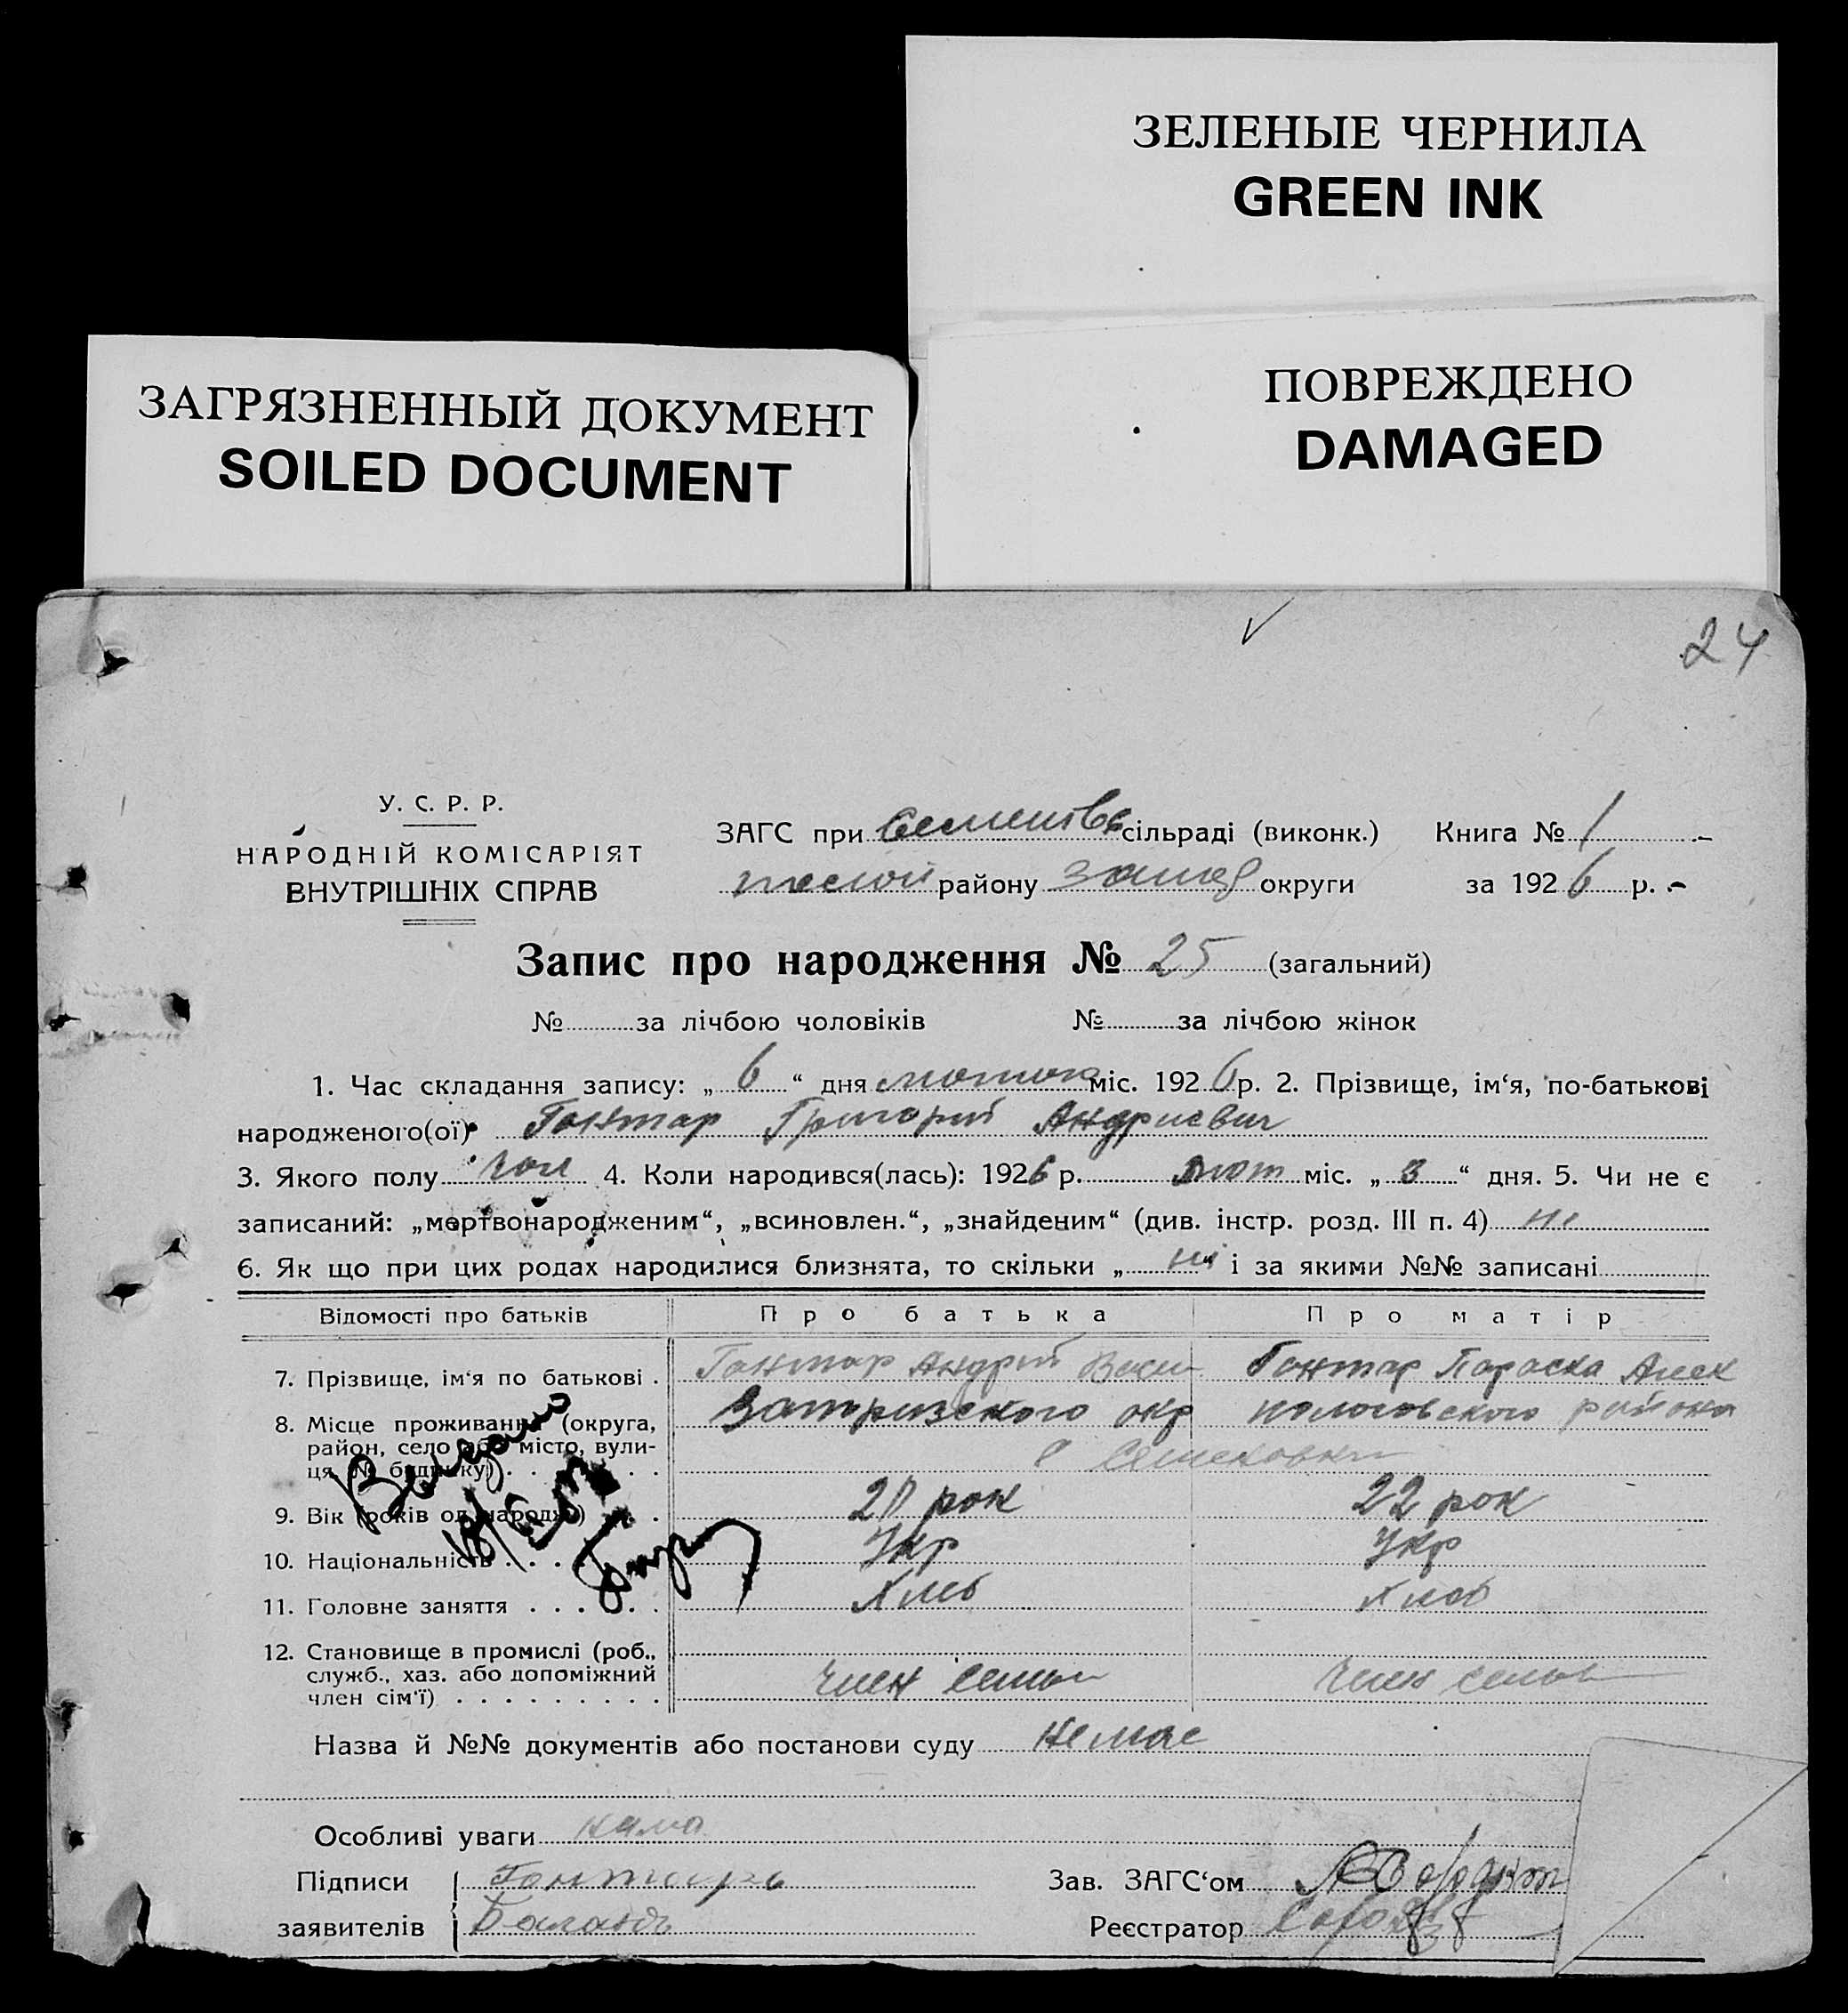 ЗЕЛЕНЫЕ ЧЕРНИЛА
GREEN INK
ЗАГРЯЗНЕННЫЙ ДОКУМЕНТ
SOILED DOCUMENT
ПОВРЕЖДЕНО
DAMAGED
24
У. С. Р. Р.
НАРОДНІЙ КОМІСАРІЯТ
ВНУТРІШНІХ СПРАВ
ЗАГС при сільраді (виконк.) Книга № 1
району округи за 1926 р.
Запис про народження № 25 (загальний)
№ за лічбою чоловіків № за лічбою жінок
1. Час складання запису: „ 6 “ дня лютого міс. 1926 р. 2. Прізвище, ім‘я, по-батькові
народженого(ої) Гонтар Григорій Андриевич
3. Якого полу чол 4. Коли народився(лась): 1926 р. лют міс. „ 3 “ дня. 5. Чи не є
записаний: „мертвонародженим“, „всиновлен.“, „знайденим“ (див. інстр. розд. III п. 4) ні
6. Як що при цих родах народилися близнята, то скільки „ ні “ і за якими №№ записані
Відомості про батьків Про батька Про матір
7. Прізвище, ім‘я по батькові . Гонтар Андрій Васи Гонтар Параска Алек
8. Місце проживання (округа, Запоризского окр пологовского района
район, село або місто, вули-
ця, № будинку) . . . . . . с Семеновка
9. Вік (років од народж.) . . . рок 22 рок
10. Національність . . . . Укр Укр
11. Головне заняття . . . . . . Хліб Хліб
12. Становище в промислі (роб.,
служб., хаз. або допоміжний
член сім‘ї) . . . . . . . . . член семьи член семьи
Назва й №№ документів або постанови суду немає
Особливі уваги нема
Підписи Гонтарь Зав. ЗАГС‘ом
заявителів Реєстратор